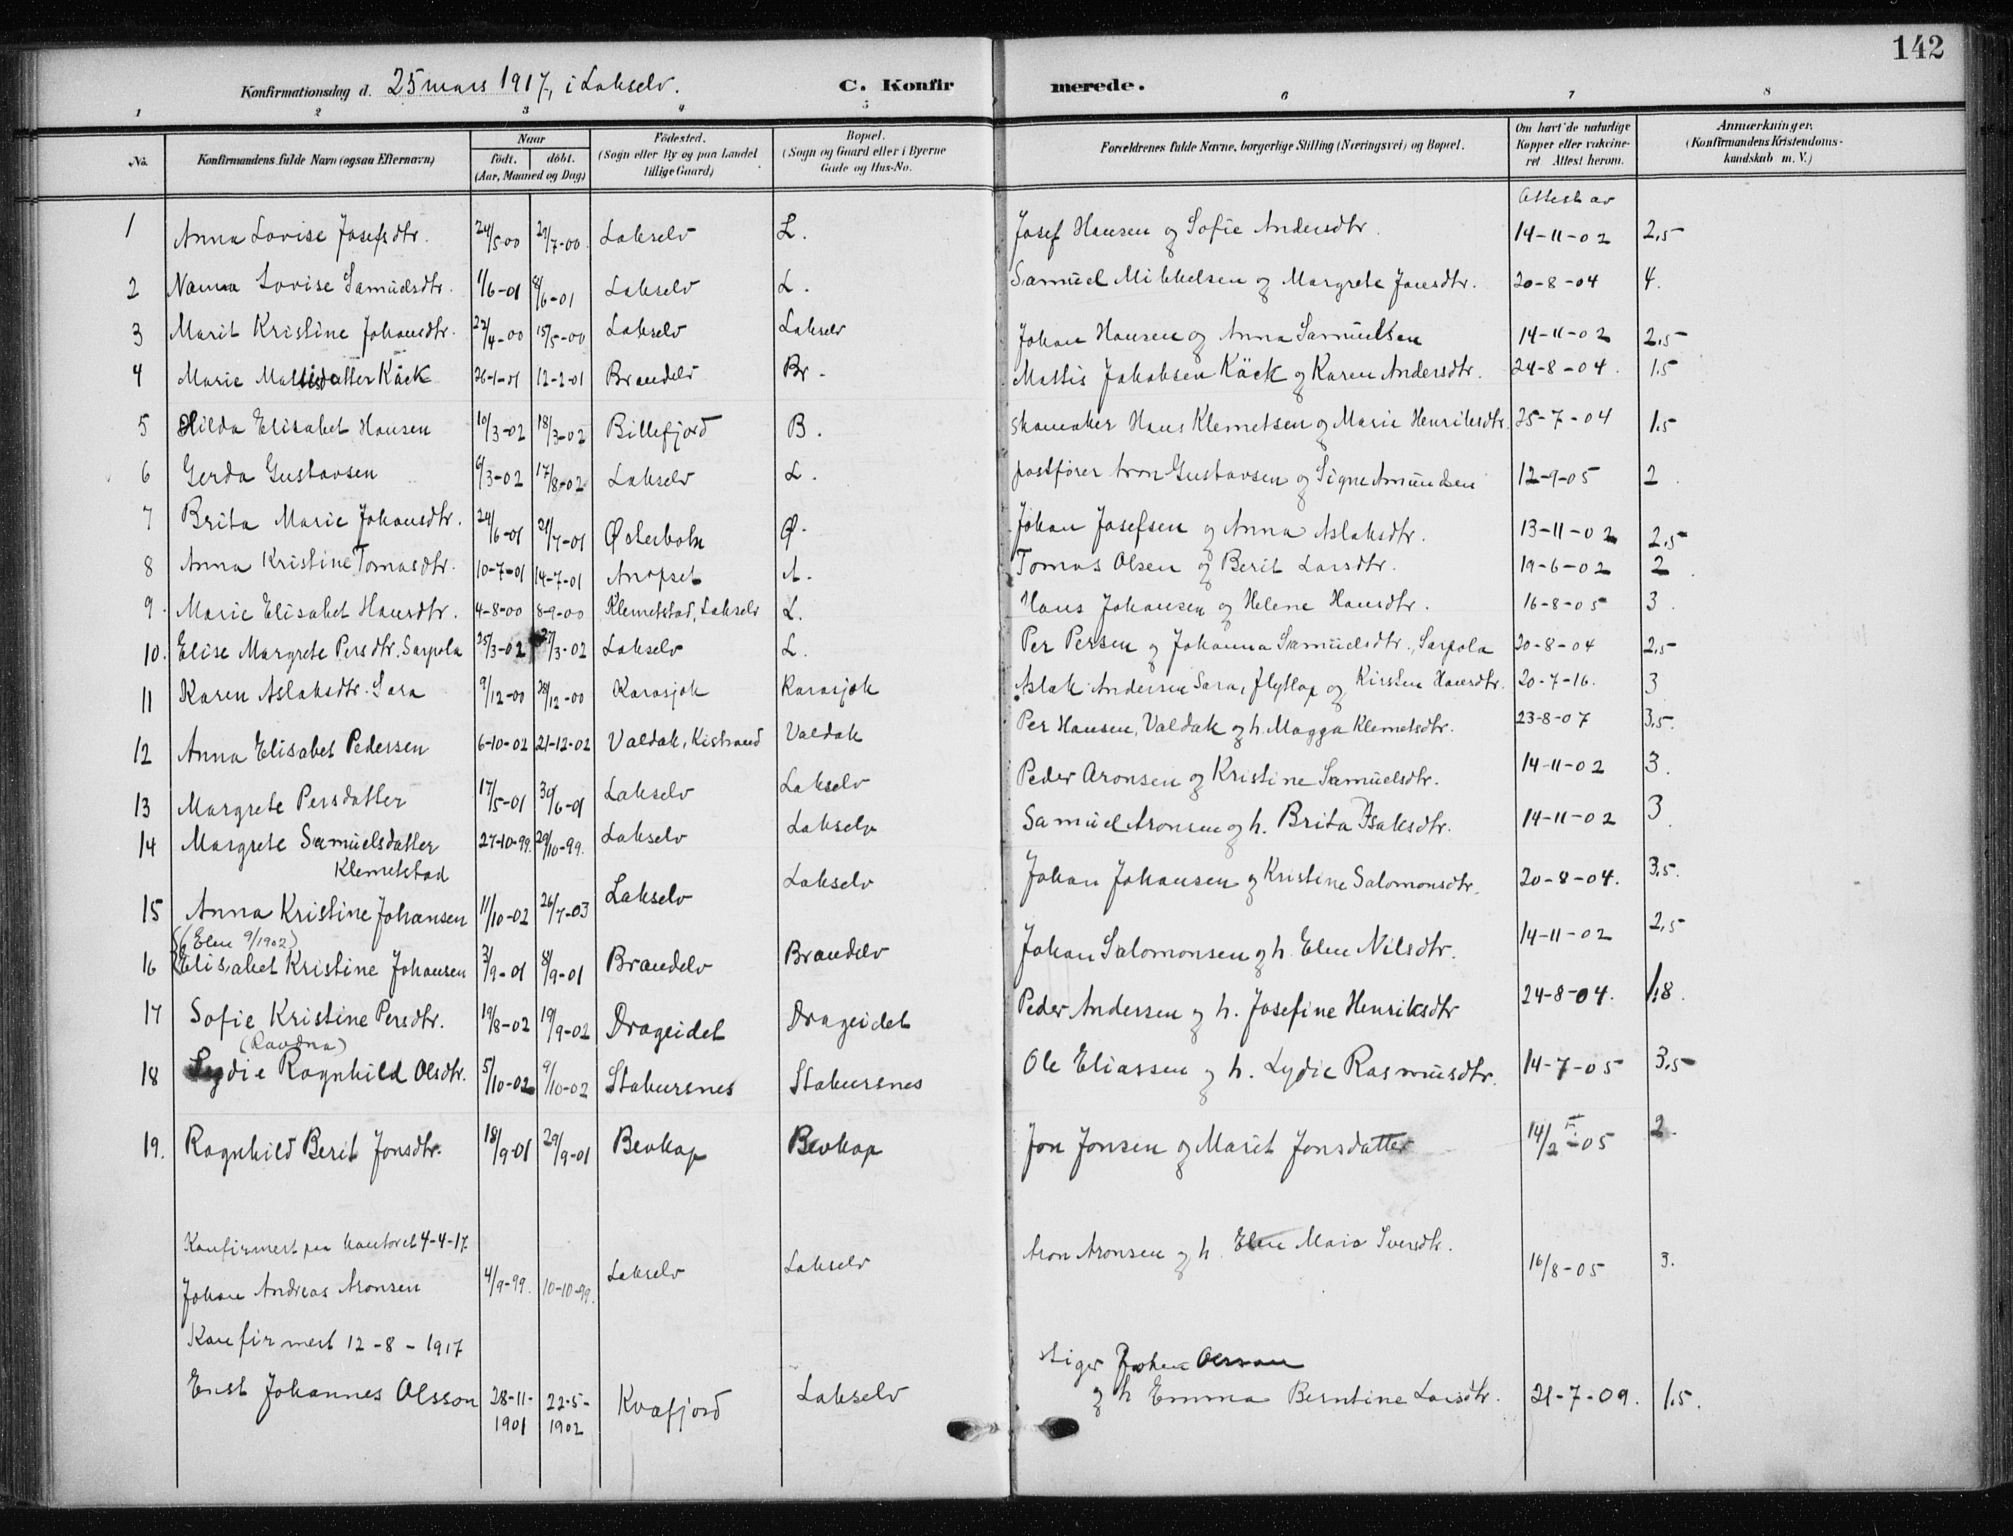 142
Konfirmationsdag d. 25 mars 1917, i Lakselv. C. Konfirmerede.
1 2 3 4 5 6 7 8
No. Konfirmandens fulde Navn (ogsaa Efternavn) Naar født. døbt. (Aar, Maaned og Dag) Fødested. (Sogn eller By og paa Landet tillige Gaard) Bopæl. (Sogn og Gaard eller i Byerne Gade og Hus-No. Forældrenes fulde Navne, borgerlige Stilling (Næringsvei) og Bopæl. Om havt de naturlige Kopper eller vakcineret Attest herom. Anmærkninger. (Konfirmandens Kristendomskundskab m. V.)
Attest av
1 Anna Lovise Josefsdtr. 24/5-00 29/7-00. Lakselv L. Josef Hansen og Sofie Andersdtr. 14-11-02 2,5
2 Nanna Lovise Samuelsdtr. 1/6-01 8/6-01 Lakselv L. Samuel Mikkelsen og Margrete Jansdtr. 20-8-04 4.
3 Marit Kristine Johansdtr. 22/4-00 15/5-00 Lakselv Lakselv Johan Hansen og Anna Samuelsen 14-11-02 2,5
4 Marie Mattisdatter Käck 26-1-01 12-2-01 Brandelv Br. Mattis Jakobsen Käck og Karen Andersdtr. 24-8-04. 1.5
5 Hilda Elisabet Hansen 10/3-02 18/3-02 Billefjord B. skomaker Hans Klemetsen og Marie Henriksdtr. 25-7-04 1.5
6 Gerda Gustavsen 6/3-02 17/8-02 Lakselv L. postfører Aron Gustavsen og Signe Amundsen 12-9-05 2.
7 Brita Marie Johansdtr. 24/6-01 21/7-01 Østerbotn Ø. Johan Josefsen og Anna Aslaksdtr. 13-11-02 2,5
8 Anna Kristine Tomasdtr. 10-7-01 14-7-01 Anopset A. Tomas Olsen og Berit Larsdtr. 19-6-02 2.
9. Marie Elisabet Hansdtr. 4-8-00 8-9-00 Klemetstad, Lakselv L. Hans Johansen og Helene Hansdtr. 16-8-05 3.
10. Elise Margrete Persdtr. Sarpola 25/3-02 27/3-02 Lakselv L. Per Persen og Johanna Samuelsdtr., Sarpola 20-8-04 2,5
11 Karen Aslaksdtr. Sara 9/12-00 28/12-00 Karasjok Karasjok Aslak Andersen Sara, flytlap og Kirsten Hansdtr. 20-7-16. 3
12 Anna Elisabet Pedersen 6-10-02 21-12-02 Valdak, Kistrand Valdak Per Hansen, Valdak og h. Magga Klemetsdtr. 23-8-07 3,5.
13 Margrete Persdatter 17/5-01 30/6-01 Lakselv Lakselv Peder Aronsen og Kristine Samuelsdtr. 14-11-02 3.
14 Margrete Samuelsdatter 27-10-99. 29/10-99. Lakselv Lakselv Samuel Aronsen og h. Brita Isaksdtr. 14-11-02 3.
Klemetstad
15 Anna Kristine Johansen 11/10-02 26/7-03 Lakselv Lakselv Johan Johansen og Kristine Salomonsdtr. 20-8-04. 3,5.
(Elen 9/1902)
16 Elisabet Kristine Johansen 3/9-01 8/9-01 Brandelv Brandelv Johan Salomonsen og h. Elen Nilsdtr. 14-11-02 2,5
17 Sofie Kristine Persdtr. 19/8-02 19/9-02 Drageidet Drageidet Peder Andersen og h. Josefine Henriksdtr 24-8-04. 1.8.
(Ravdna)
18 Lydie Ragnhild Olsdtr. 5/10-02 9/10-02 Stabursnes Stabursnes Ole Eliassen og h. Lydie Rasmusdtr. 14-7-05 3,5
19. Ragnhild Berit Jonsdtr. 18/9-01 29/9-01 Bevkop Bevkop Jon Jonsen og Marit Jonsdatter 14/2-05 2.
Konfirmert paa kontoret 4-4-17.
Johan Andreas Aronsen 4/9-99. 10-10-99. Lakselv Lakselv Aron Aronsen og h. Elen Maia Iversdtr. 16/8-05 3.
Konfirmert 12-8-1917
Enst Johannes Olsson 28-11-1901 22-5-1902 Kvæfjord Lakselv stiger Johan Olsson
og h Emma Berntine Larsdtr. 21-7-09. 1,5.